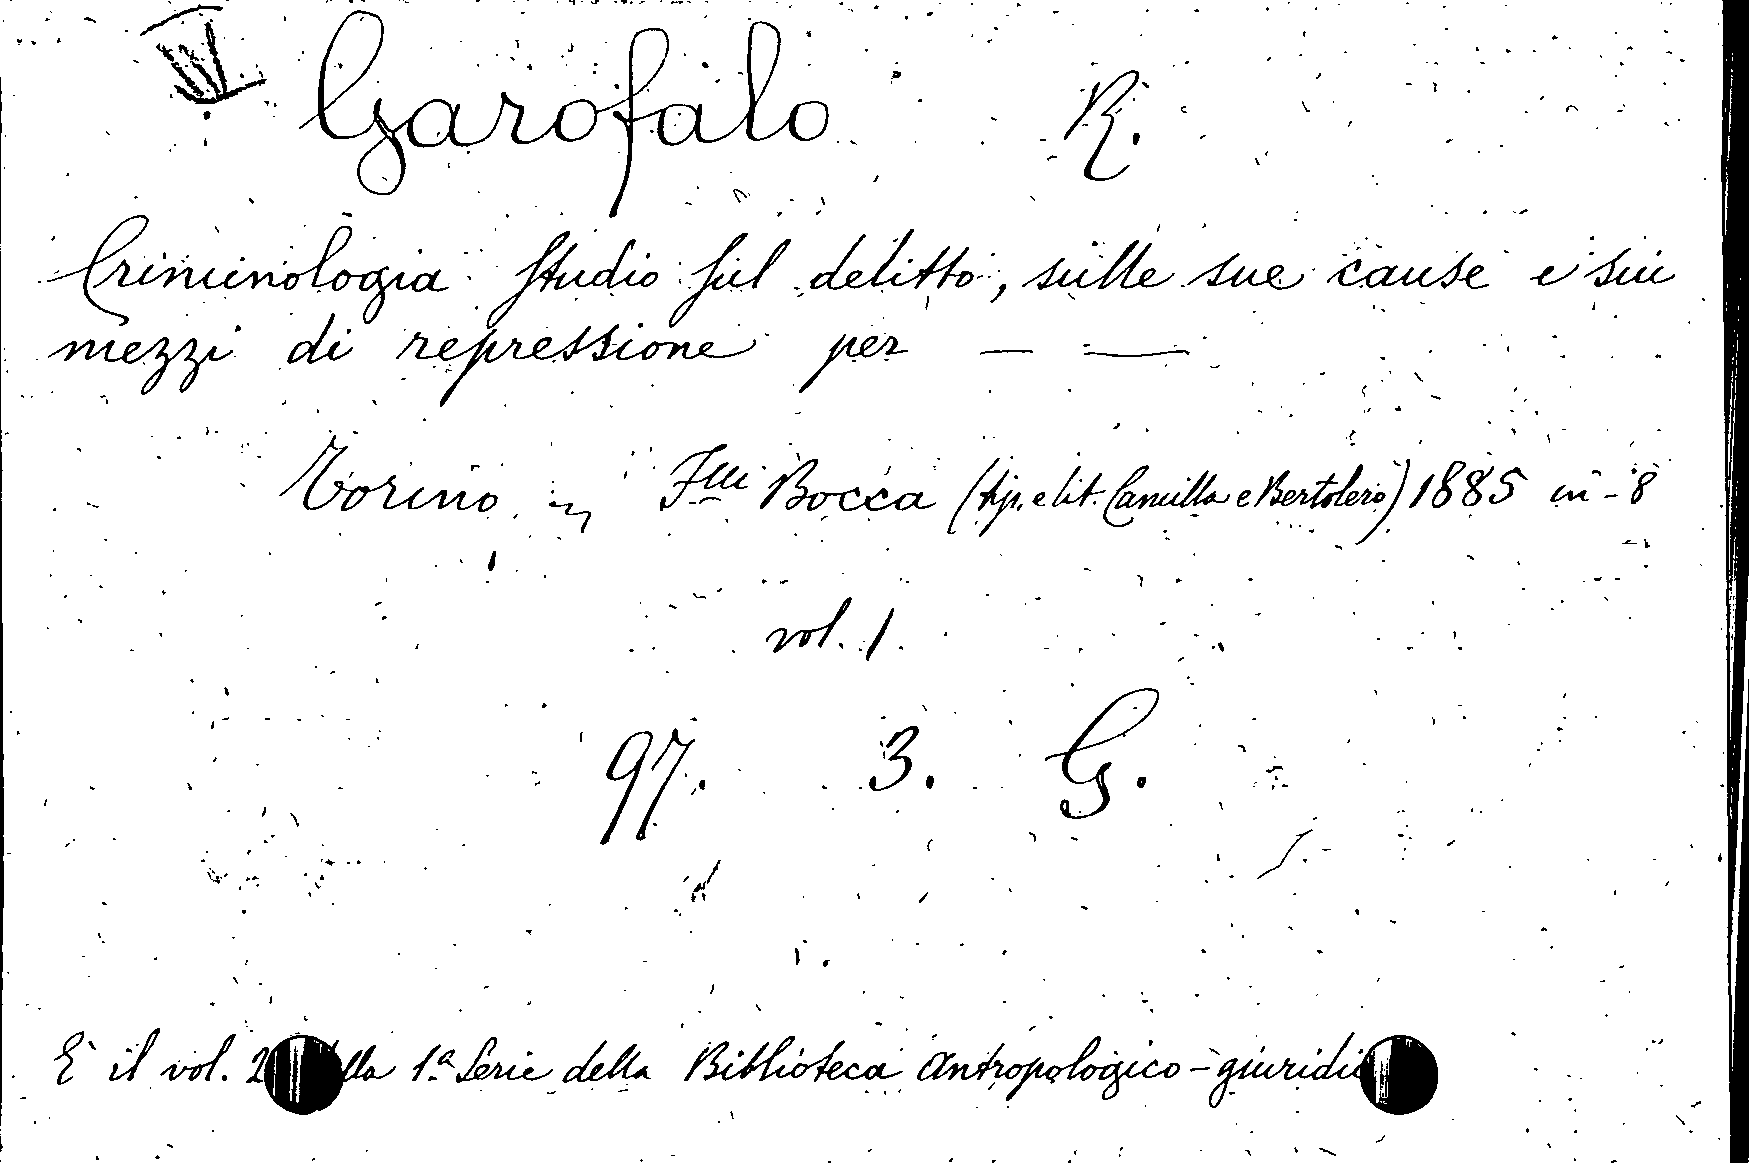 Garofalo R.
Criminologia Studio sul delitto, sulle sue cause e sui
mezzi di repressione per — —
Torino, F.lli Bocca (tip. e lit. Camilla e Bertolero) 1885 in-8
vol. 1.
97. 3. G.
È il vol. 2 della 1.a Serie della Biblioteca Antropologico-giuridic